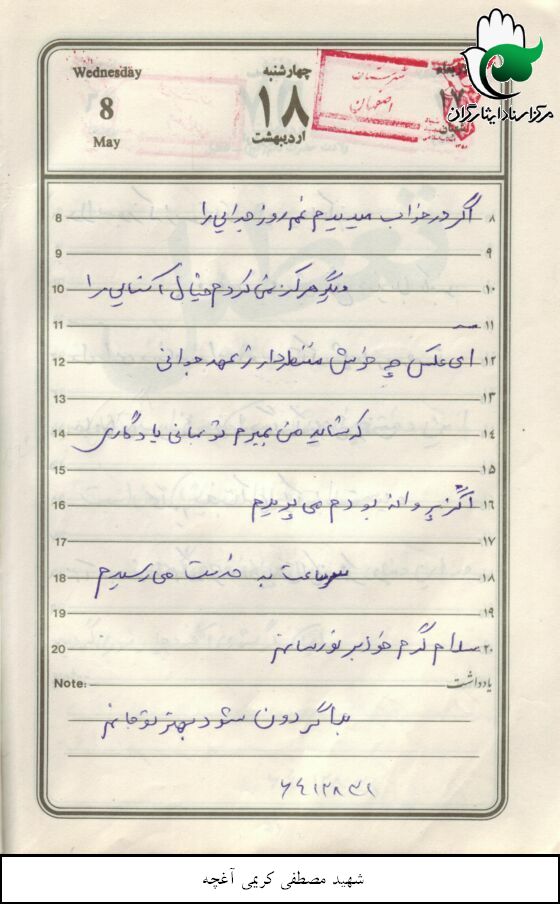 مرکز اسناد ایثارگران
Wednesday
8
May
چهارشنبه
۱۸
اردیبهشت
شهرستان
اصفهان
8 اگر در خواب میدیدم غم روز جدایی را ۸
9 ۹
10 دیگر هرگز نمی کردم خیال آشنایی را ۱۰
11 ۱۱
12 ای عکس چه خوش منتظر دار ز عهد جوانی ۱۲
13 ۱۳
14 که شاید من بمیرم تو بمانی یادگاری ۱۴
15 ۱۵
16 اگر پروانه بودم می پریدم ۱۶
17 ۱۷
18 سرساعت به خدمت می رسیدم ۱۸
19 ۱۹
20 سلام گرم خود بر تو رسانم ۲۰
Note: یادداشت
فدا گردون شود بهتر تو جانم
شهید مصطفی کریمی آغچه